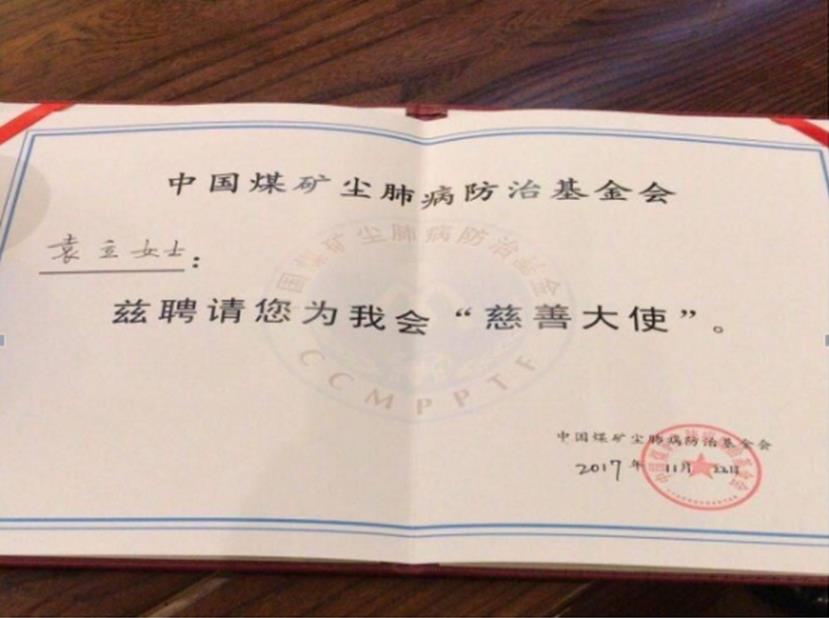 中国煤矿尘肺病防治基金会
袁立女士：
兹聘请您为我会“慈善大使”。
中国煤矿尘肺病防治基金会
CCMPPTF
中国煤矿尘肺病防治基金会
2017年11月22日
中国煤矿尘肺病防治基金会